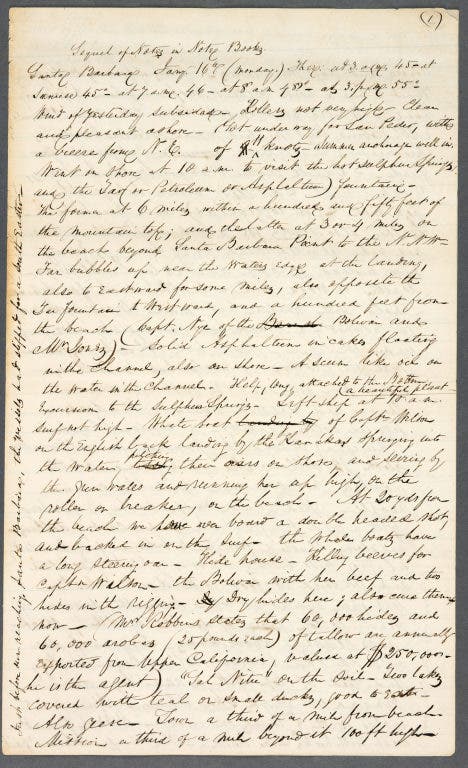 (1)
Sequel of Notes in Note Books
Santa Barbara Jany. 16th (monday.) Ther. at 3 a.m. 45° at
sunrise 45° at 7 a.m. 46 - at 8 a.m. 48° at 3. p.m. 55°
Wind of yesterday subsided - Rollers not very high - Clear
and pleasant ashore - Got under way for San Pedro, with
a breeze from N.E. of Knots Summer anchorage well in.
Went on shore at 10 a.m. to visit the hot Sulphur Springs,
and the Tar or Petroleum or Asphaltum) fountain -
The former at 6 miles within a hundred and fifty feet of
the mountain top; and the latter at 3 or 4 miles on
the beach beyond Santa Barbara Point to the N.N.W.
Tar bubbles up near the Waters edge at the landing,
also to Eastward for some miles, also opposite the
Tar fountain to Westward, and a hundred feet from
the beach (Capt. Nye of the Bolivar and
Mr Jones) - Solid Asphaltum in cakes floating
in the Channel, also on Shore - A scum like oil on
the water in the Channel - Kelp, long, attached to the Bottom
(a beautiful & pleast
Excursion to the Sulphur Springs - Left Ship 10 a.m.
surf not high - Whale boat of Captn Wilson
on the English tack landing by the Kanakas springing into
the water, pitching their oars on shore, and seizing by
the Gunwales and running her up high, on the
roller or breaker, on the beach - At 20 yds from
the beach we hove over board a double headed shot
and backed in on the surf - the Whale boats have
a long steering oar - Hide house - Killing beeves for
Captn Walton - the Bolivar with her beef and two
hides in the rigging - Dry hides here; also cure them
now - Mr Robbins states that 60,000 hides and
60,000 arobas (25 pounds each) of tallow are annually
exported from Upper California, values at $250,000 -
he is the agent) "Sal Nitre" on the soil - Two lakes
covered with teal or small ducks, good to Eat -
Also geese - Town a third of a mile from beach -
Mission a third of a mile beyond it 100 ft high -
before our reaching Santa Barbara, the vessels had slipped for a South Easter -